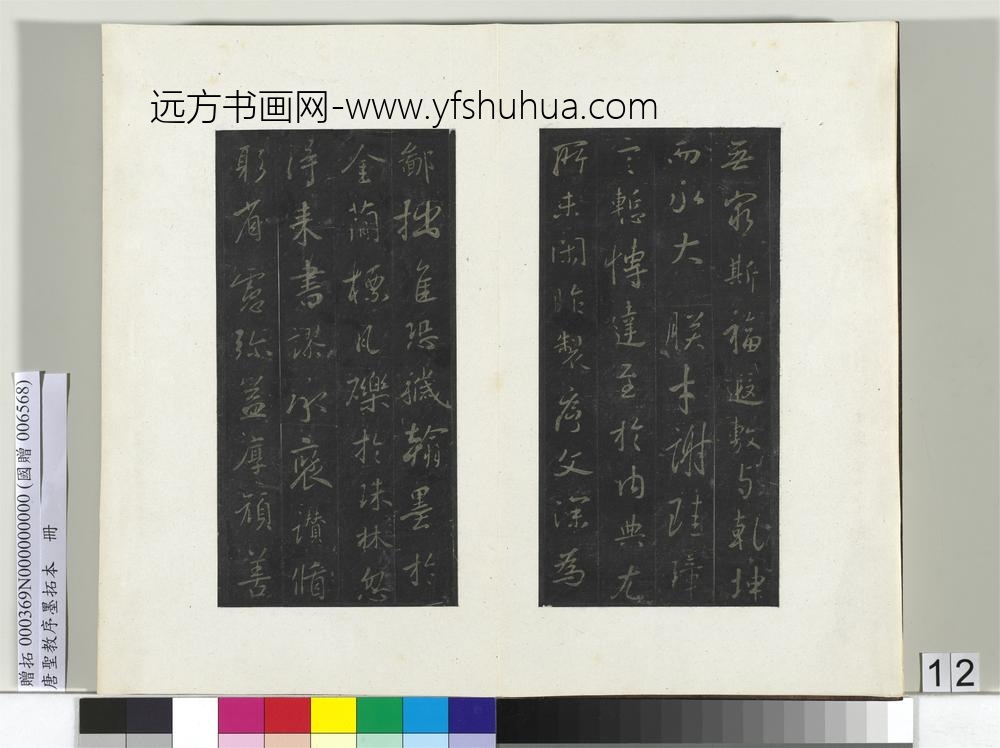 远方书画网-www.yfshuhua.com
無窮斯福遐敷与乾坤
而永大 朕才謝珪璋
言慙博達至於内典尤
所未閑昨製序文深為
鄙拙唯恐穢翰墨於
金簡標瓦礫於珠林忽
得来書謬承褒讚循
躬省慮弥益厚顔善
贈拓 000369N000000000 (國贈 006568)
唐聖教序墨拓本 冊
12